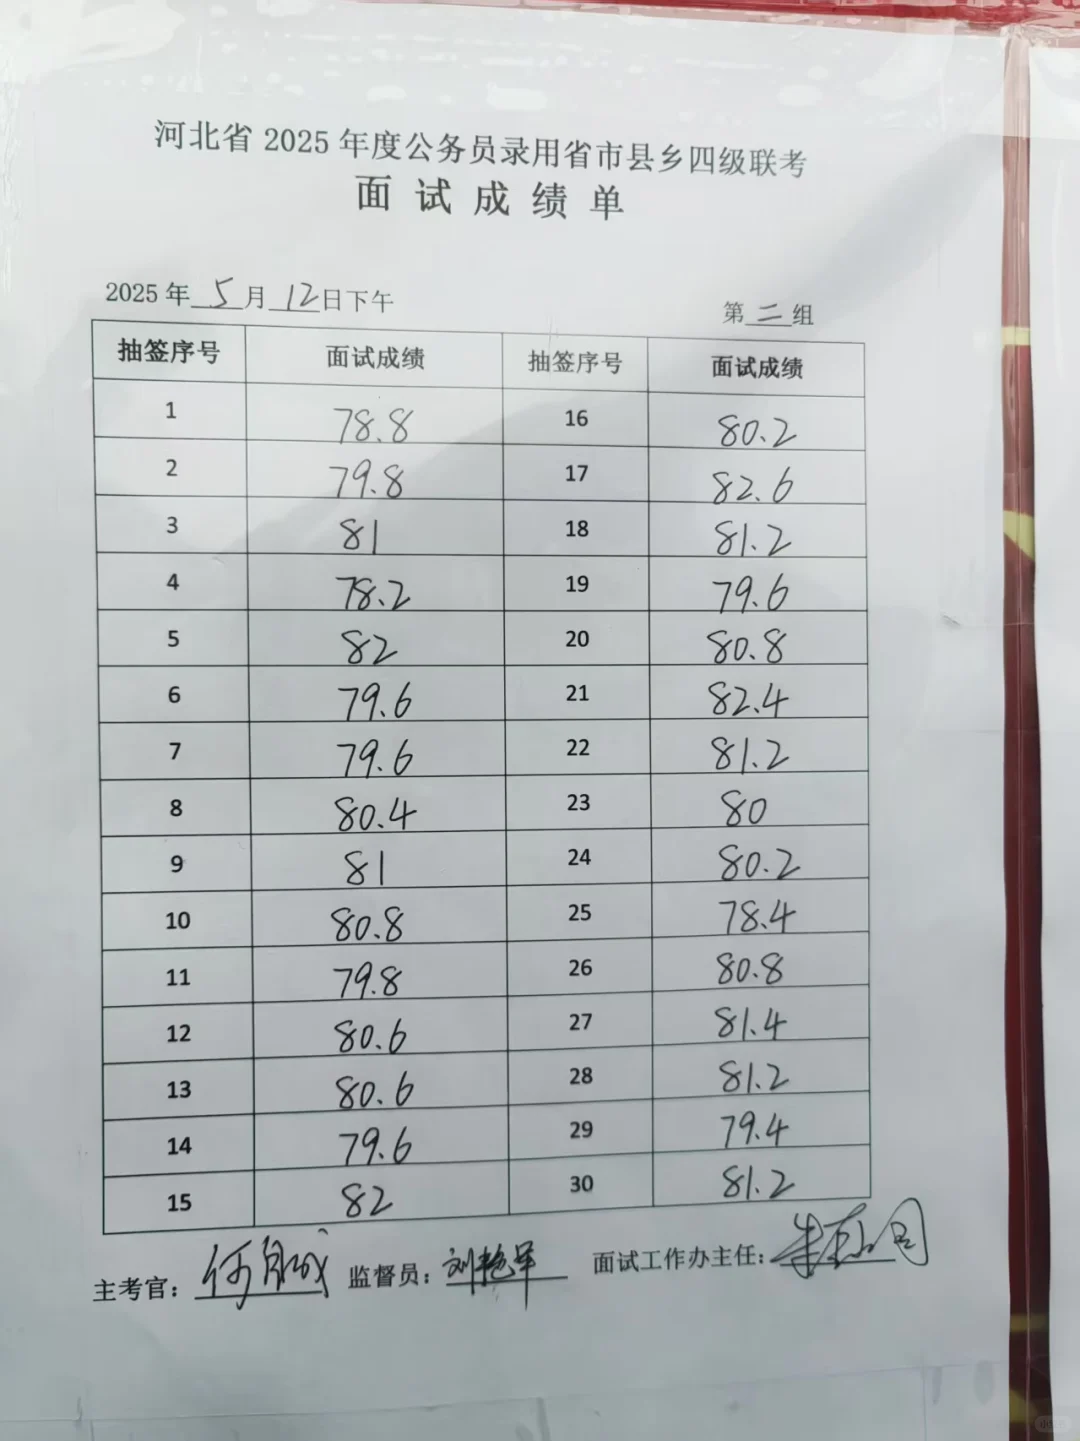 河北省 2025 年度公务员录用省市县乡四级联考
面试成绩单
2025 年 5 月 12 日下午 第 二 组
抽签序号 面试成绩 抽签序号 面试成绩
1 78.8 16 80.2
2 79.8 17 82.6
3 81 18 81.2
4 78.2 19 79.6
5 82 20 80.8
6 79.6 21 82.4
7 79.6 22 81.2
8 80.4 23 80
9 81 24 80.2
10 80.8 25 78.4
11 79.8 26 80.8
12 80.6 27 81.4
13 80.6 28 81.2
14 79.6 29 79.4
15 82 30 81.2
主考官： 监督员：刘艳军 面试工作办主任：